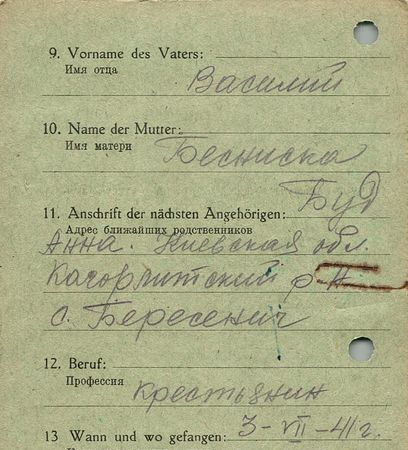 9. Vorname des Vaters:
Имя отца
Василий
10. Name der Mutter:
Имя матери
Бесниска
Буд
11. Anschrift der nächsten Angehörigen:
Адрес ближайших родственников
Анна. Киевская обл.
Кагорлитский р-н
с. Бересенич
12. Beruf:
Профессия
крестьянин
13 Wann und wo gefangen: 3-VII-41г.